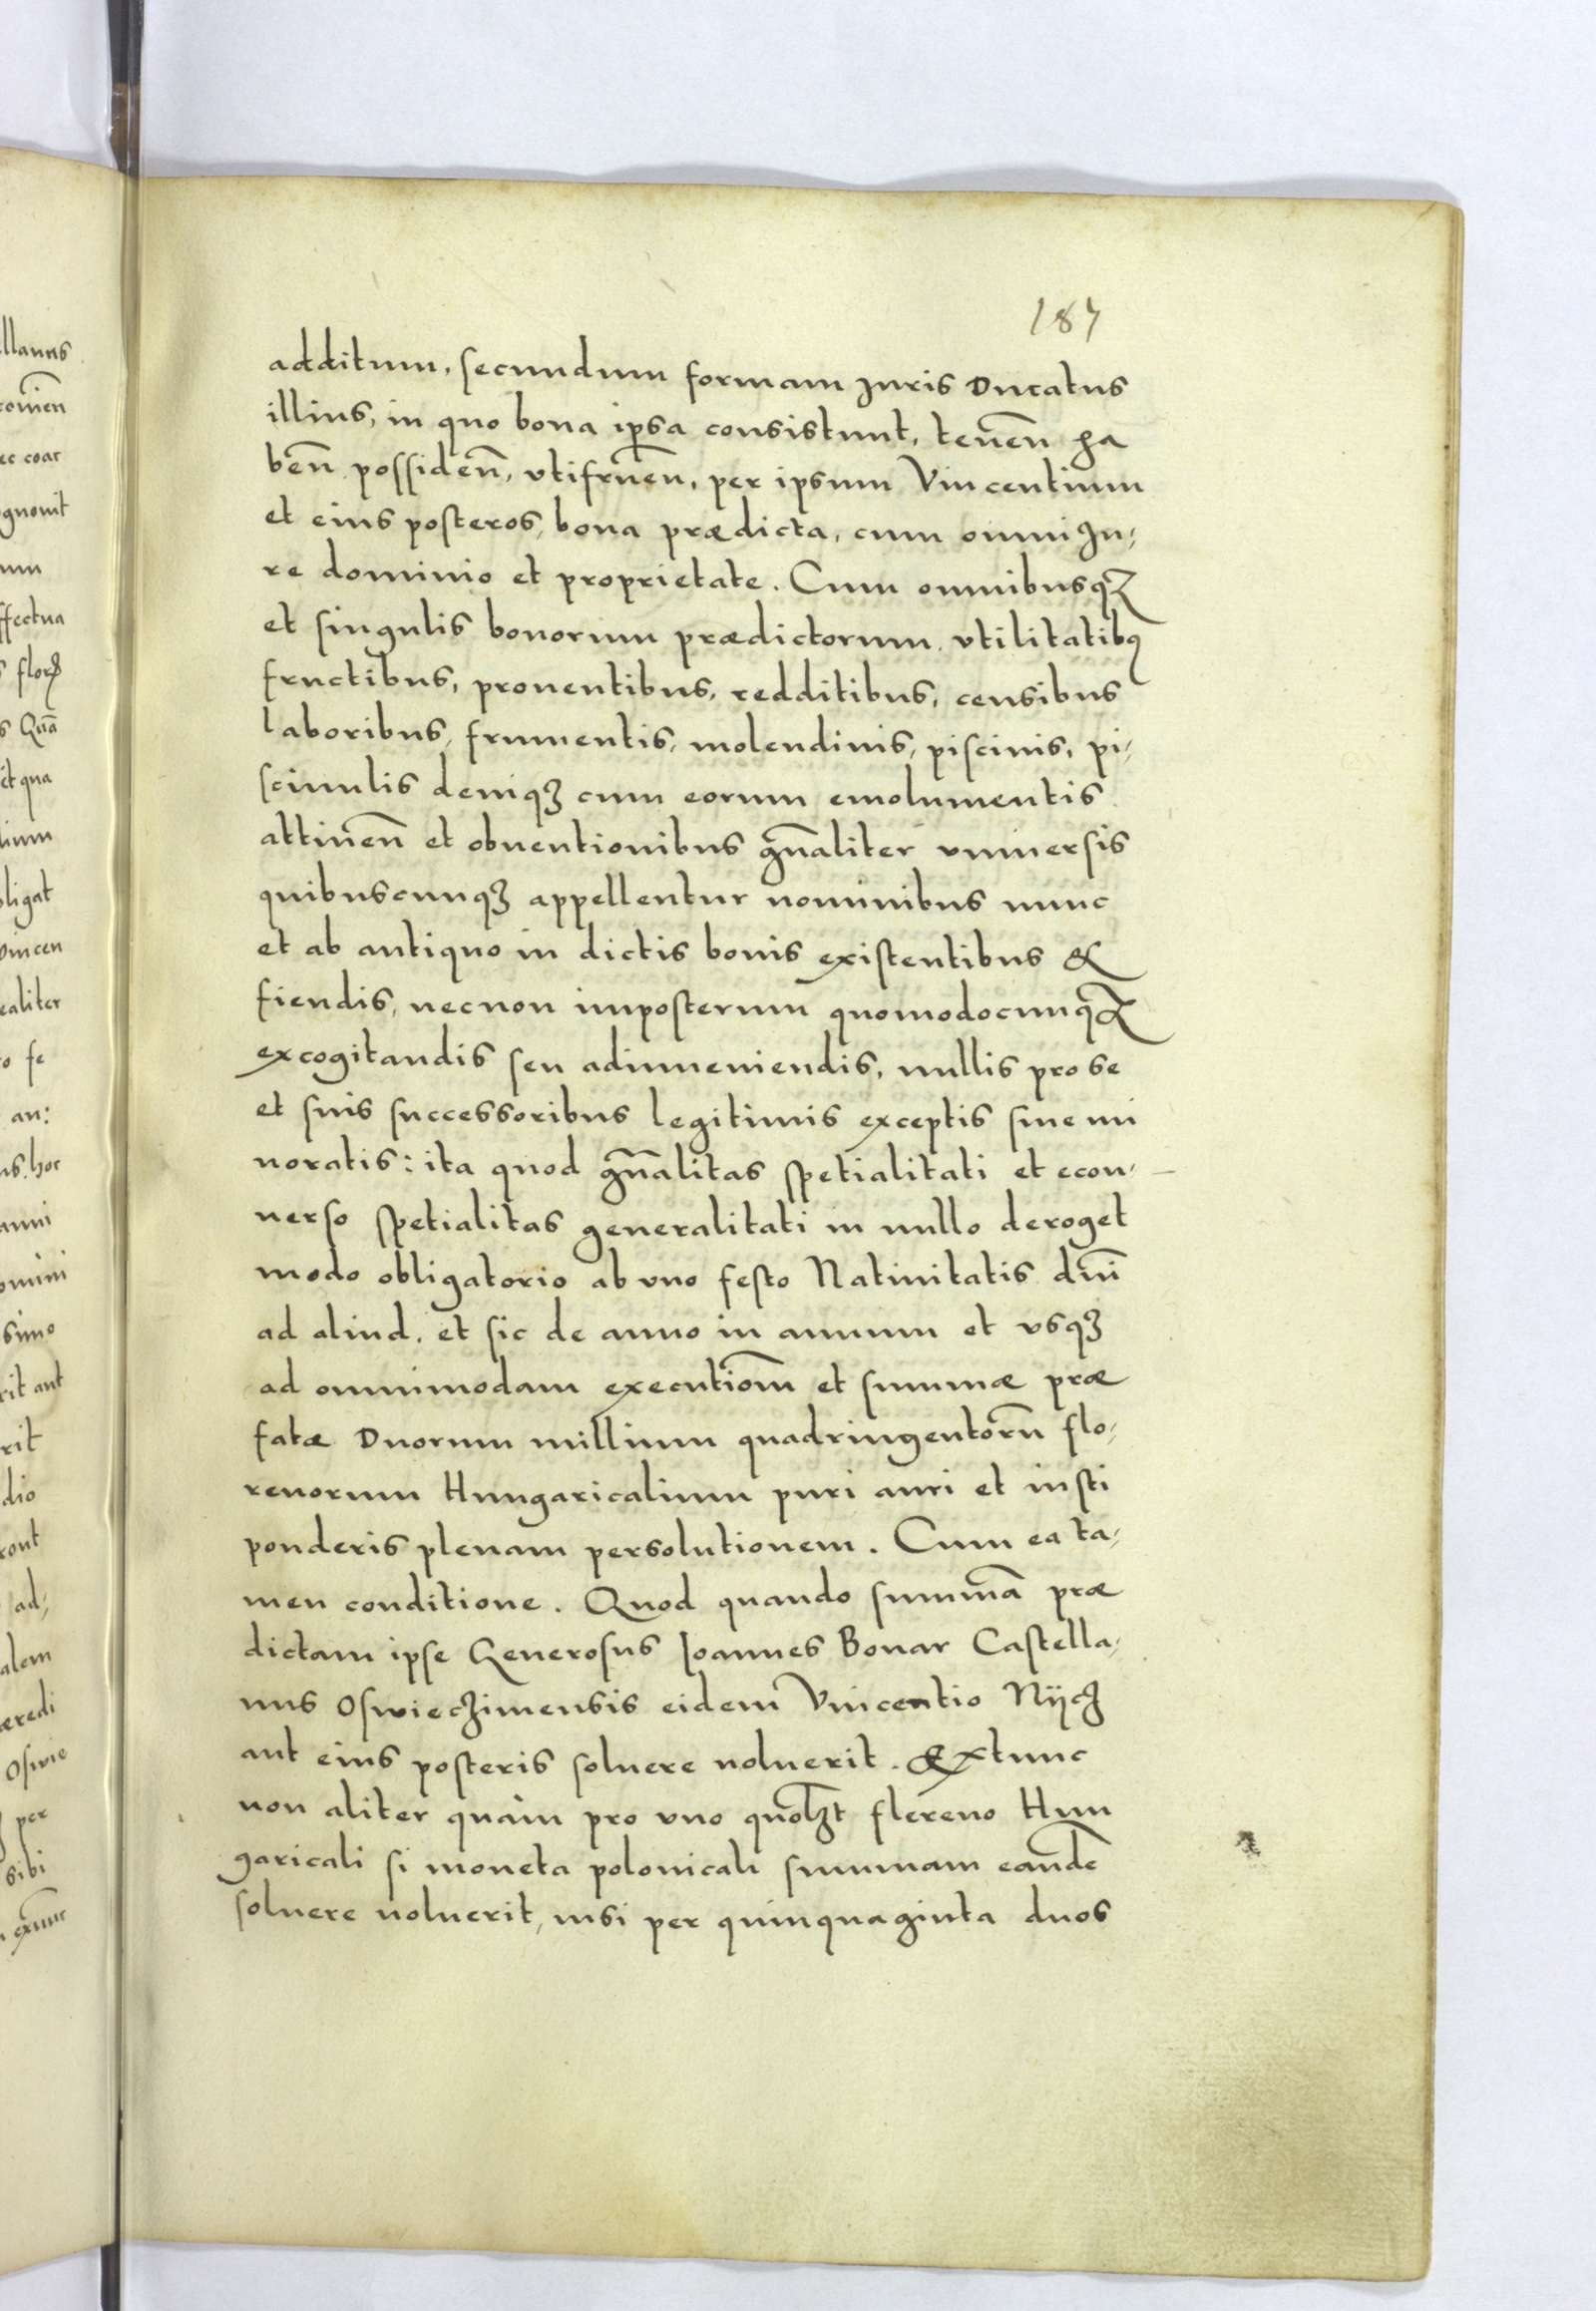 187
additum, secundum formam Juris Ducatus
illius, in quo bona ipsa consistunt, teneñ ha
beñ possideñ, vtifrueñ, per ipsum Vincentium
et eius posteros, bona prædicta, cum omni Ju,
re dominio et proprietate. Cum omnibusqꝫ
et singulis bonorum prædictorum vtilitatibꝰ
fructibus, prouentibus, redditibus, censibus
laboribus, frumentis, molendinis, piscinis, pi,
scinulis deniqꝫ cum eorum emolumentis
attineñ et obuentionibus gñaliter vniuersis
quibuscunqꝫ appellentur nominibus nunc
et ab antiquo in dictis bonis existentibus &
fiendis, necnon imposterum quomodocunqꝫ
excogitandis seu adinueniendis, nullis pro se
et suis successoribus legitimis exceptis siue mi
noratis: ita quod gñalitas spetialitati et econ,
uerso spetialitas generalitati in nullo deroget
modo obligatorio ab vno festo Natiuitatis dñi
ad aliud. et sic de anno in annum et vsqꝫ
ad omnimodam executiom̃ et summæ præ
fatæ Duorum millium quadringentorũ flo,
renorum Hungaricalium puri auri et iusti
ponderis plenam persolutionem. Cum ea ta,
men conditione. Quod quando summã præ
dictam ipse Generosus Ioannes Bonar Castella,
nus Oswieczimensis eidem Vincentio Nijcz
aut eius posteris soluere voluerit. Extunc
non aliter quàm pro vno quolꝫt flereno Hun
garicali si moneta polonicali summam eandẽ
soluere voluerit, nisi per quinquaginta duos
llanus
ec coar
gnouit
ffectua
s florꝫ
s Quã
it qua
lium
bligat
vincen
ealiter
o se
an:
us. hoc
anni
omini
simo
rit aut
rit
dio
ront
ad,
alem
æredi
Oswie
per
sibi